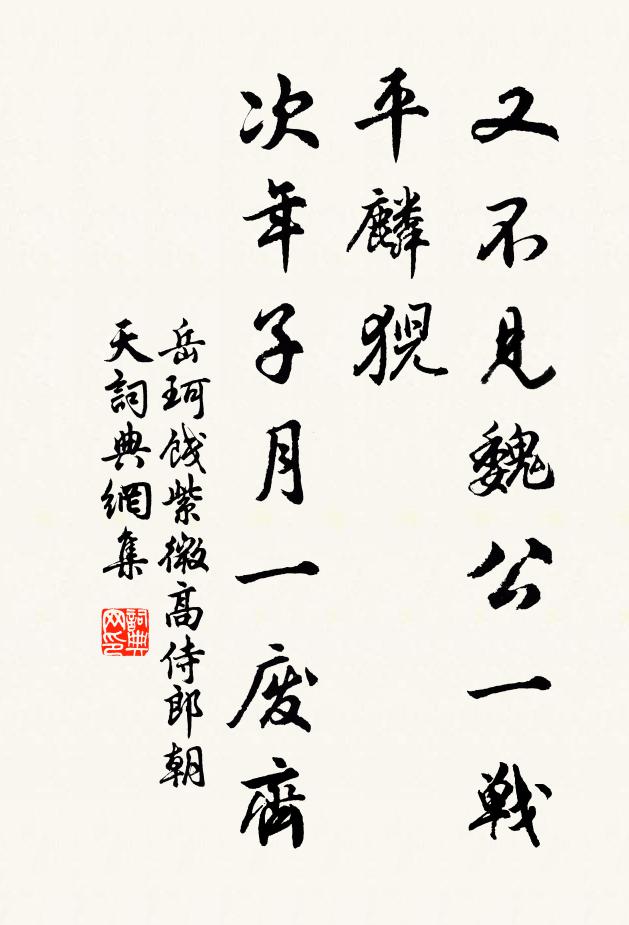 又不見魏公一戰
平麟猊
次年子月一廢齊
岳珂餞紫微高侍郎朝
天詞典網集
詞典
网印